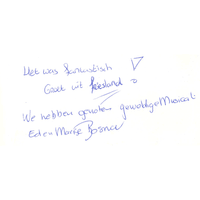 Het was fantastisch
Groet uit Friesland
We hebben genoten geweldige Musical
Ed en Marije Bosma